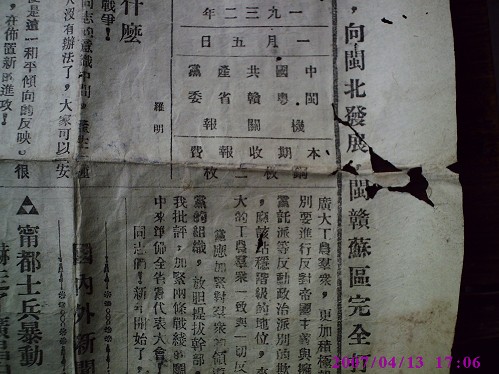 ，向閩北發展，閩贛蘇區完全打
一九三二年
一月五日
中國共產黨
閩粵贛省委
機關報
本期收報費
銅 二枚
廣大工農羣衆，更加積極
別要進行反對帝國主義與擁
黨託派等反動政治派別的欺
站穩階級的地位，來
大的工農羣衆，致與一切反
黨應加緊對羣衆的領導
黨的組織，放胆提拔幹部，
我批評，加緊兩條戰綫的
中來準備全省黨代表大會，
同志們！新年開始了，
什麼
羅明
戰爭！
同志的意識中間，
沒有辦法了，大家可以安
是這一和平傾向的反映」很
在佈置新的進攻！
國內外新
甯都士兵暴動
2007/04/13 17:06